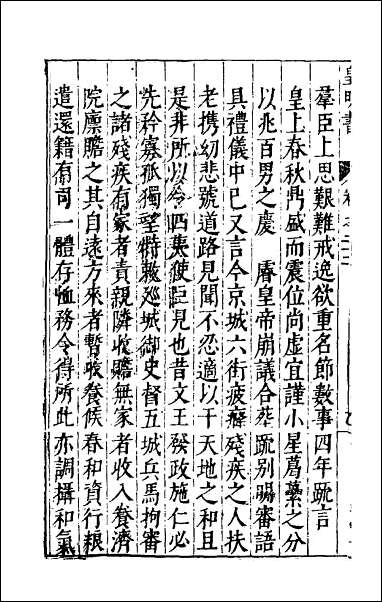 皇明書 卷之二十
羣臣上思艱難戒逸欲重名節數事四年疏言
皇上春秋鼎盛而震位尚虛宜謹小星葛藟之分
以兆百男之慶 睿皇帝崩議合葬疏別嗣審語
具禮儀中已又言今京城六街疲癃殘疾之人扶
老攜幼悲號道路見聞不忍適以干天地之和且
是非所以令四夷使臣見也昔文王發政施仁必
先矜寡孤獨望特敕巡城御史督五城兵馬拘審
之諸殘疾有家者責親隣收贍無家者收入養濟
院廩贍之其自遠方來者暫收養候春和資行糧
遣還籍有司一體存恤務令得所此亦調攝和氣